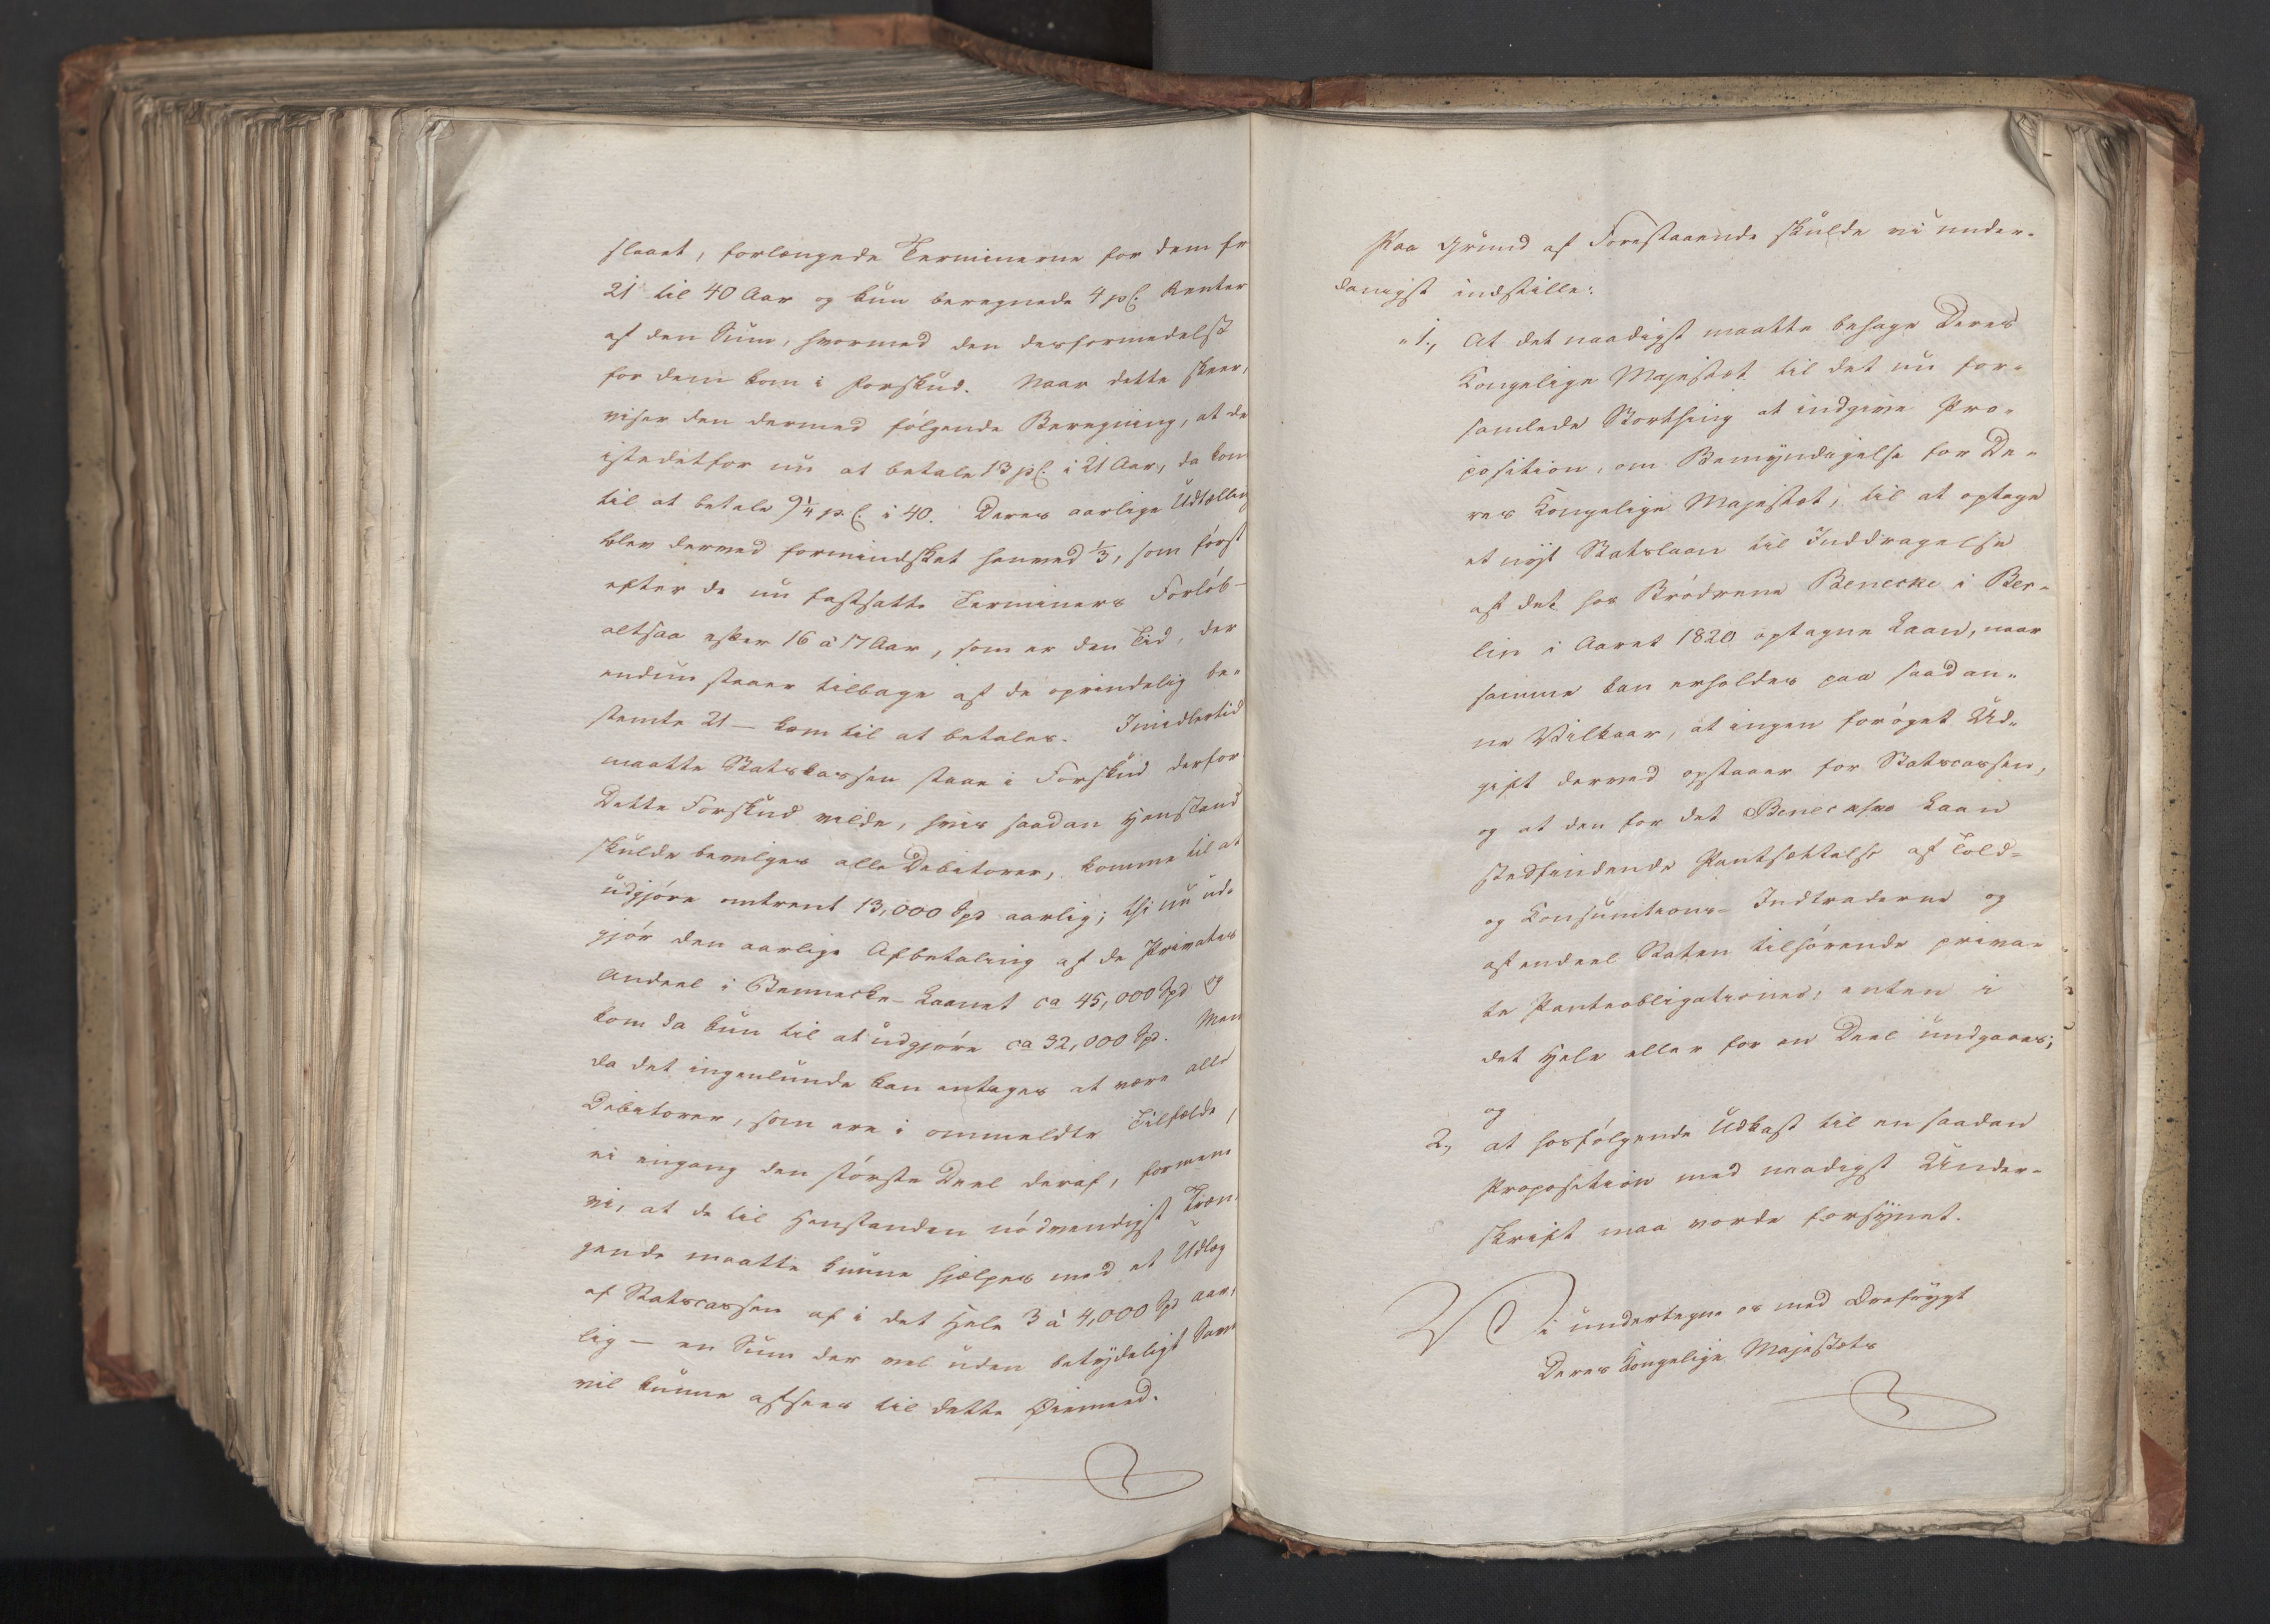 slaaet, forlængede Terminerne for dem fr
21 til 40 Aar og kun beregnede 4 pC. Renter
af den Sum, hvormed den desformedelst
for dem kom i Forskud. Naar dette skeer,
viser den dermed følgende Beregning, at de
istedetfor nu at betale 13 pC. i 21 Aar, da kom
til at betale 9¼ pC. i 40. Deres aarlige Udtælling
blev derved formindsket henved ⅓, som først
efter de nu fastsatte Terminers Forløb -
altsaa efter 16 à 17 Aar, som er den Tid, der
endnu staaer tilbage af de oprindelig be-
stemte 21 - kom til at betales. Imidlertid
maatte Statskassen staae i Forskud derfor
Dette Forskud vilde, hvis saadan Henstand
skulde bevilges alle Debitorer, komme til at
udgjøre omtrent 13,000 Spd aarlig; thi nu ud-
gjør den aarlige Afbetaling af de Privates
Andeel i Bennecke-Laanet ca 45,000 Spd og
kom da kun til at udgjøre ca 32,000 Spd. Men
da det ingenlunde kan antages at være alle
Debitorer, som ere i ommeldte Tilfælde,
ei engang den største Deel deraf, formene
vi, at de til Henstanden nødvendigst Træn-
gende maatte kunne hjælpes med et Udlæg
af Statscassen af i det Hele 3 à 4,000 Spd aar-
lig - en Sum der vel uden betydeligt Savn
vil kunne afsees til dette Øiemeed.
Paa Grund af Forestaaende skulde vi under-
danigst indstille:
"1., At det naadigst maatte behage Deres
Kongelige Majestæt til det nu for-
samlede Storthing at indgive Pro-
position, om Bemyndigelse for De-
res Kongelige Majestæt, til at optage
et nyt Statslaan til Inddragelse
af det hos Brødrene Benecke i Ber-
lin i Aaret 1820 optagne Laan, naar
samme kan erholdes paa saadan-
ne Vilkaar, at ingen forøget Ud-
gift derved opstaaer for Statscassen,
og at den for det Beneckske Laan
stedfindende Pantsættelse af Told-
og Konsumtions-Indtraderne og
af endeel Staten tilhørende priva-
te Panteobligationer, enten i
det Hele eller for en Deel undgaaes;
og
2., at hosfølgende Udkast til en saadan
Proposition med naadigst Under-
skrift maa vorde forsynet.
Vi undertegne os med Ærefrygt
Deres Kongelige Majestæts